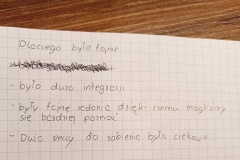 Dlaczego było fajnie
- było dużo integracji
- były fajne zadania dzięki czemu mogliśmy
się bardziej poznać
- Dużo rzeczy do robienia było ciekawe